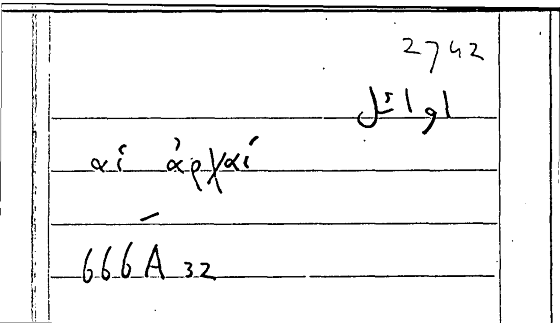 2742
اوائل
αἱ ἀρχαί
666A 32